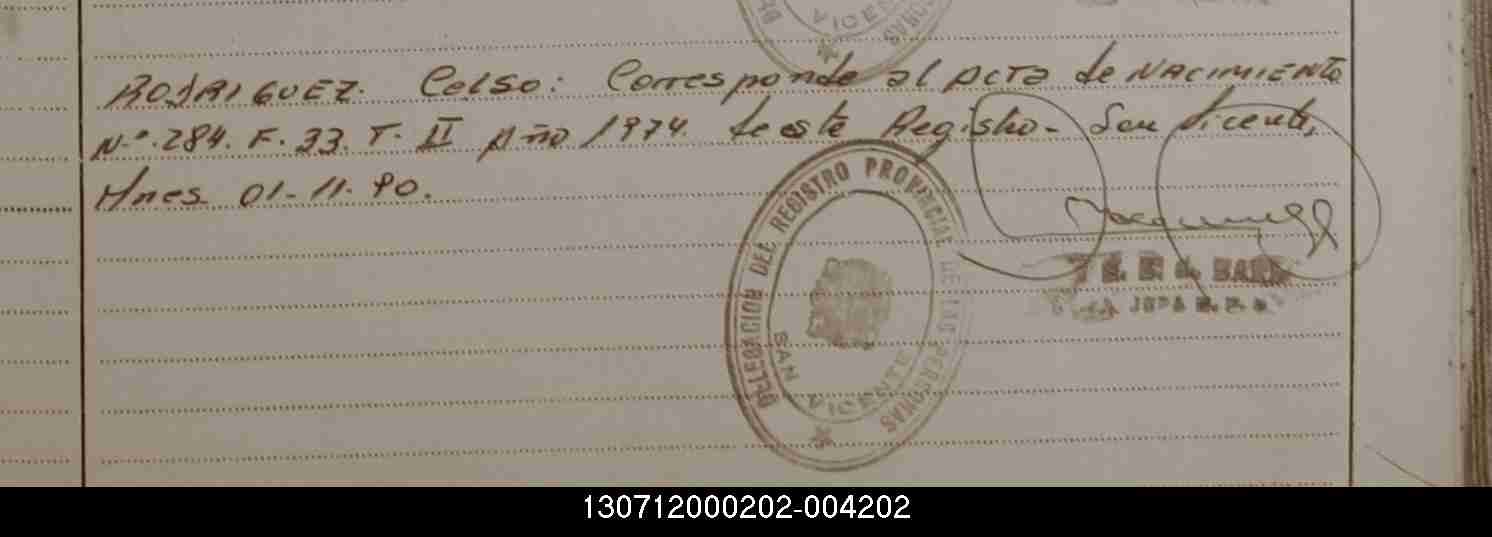 RODRIGUEZ. Celso: Corresponde al Acta de NACIMIENTO
N.º 284. F. 33. T. II Año 1974. de este Registro- San Vicente,
Mnes 01-11-90.
DELEGACION DEL REGISTRO PROVINCIAL DE LAS PERSONAS
SAN VICENTE
130712000202-004202